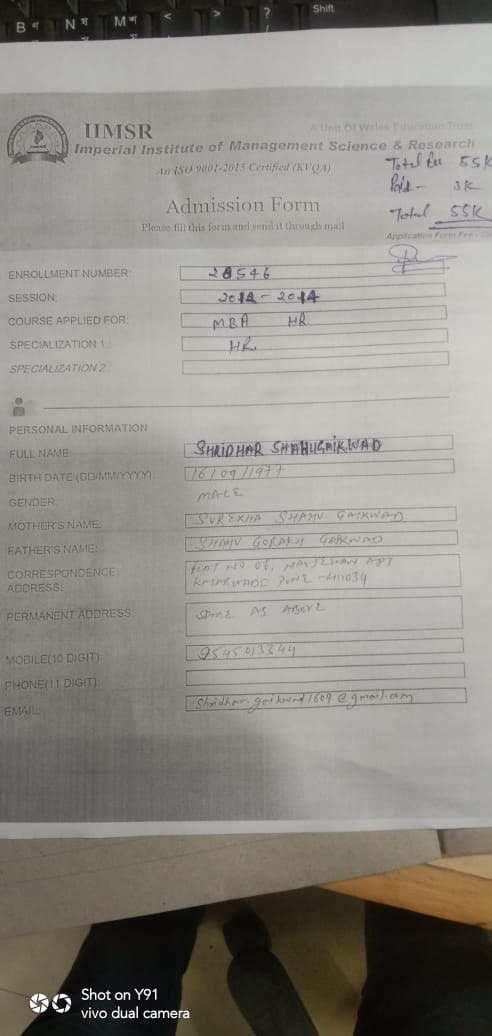 B
N
M
<
>
?
/
Shift
IIMSR
A Unit Of Wales Education Trust
Imperial Institute of Management Science & Research
An ISO 9001-2015 Certified (KVQA)
Total fee 55K
Paid - 3K
Total 55K
Admission Form
Please fill this form and send it through mail
Application Form Fee -
ENROLLMENT NUMBER: 28546
SESSION: 2012 - 2014
COURSE APPLIED FOR: MBA HR
SPECIALIZATION 1: HR
SPECIALIZATION 2:
PERSONAL INFORMATION
FULL NAME: SHRIDHAR SHAHU GAIKWAD
BIRTH DATE (DD/MM/YYYY): 16/09/1977
GENDER: MALE
MOTHER'S NAME: SUREKHA SHAHU GAIKWAD
FATHER'S NAME: SHAHU GORAKH GAIKWAD
CORRESPONDENCE FLAT NO 06, APT
ADDRESS: PUNE - 411034
PERMANENT ADDRESS: SAME AS ABOVE
MOBILE(10 DIGIT): 9545013344
PHONE(11 DIGIT):
EMAIL: Shridhar.gaikwad1609@gmail.com
Shot on Y91
vivo dual camera